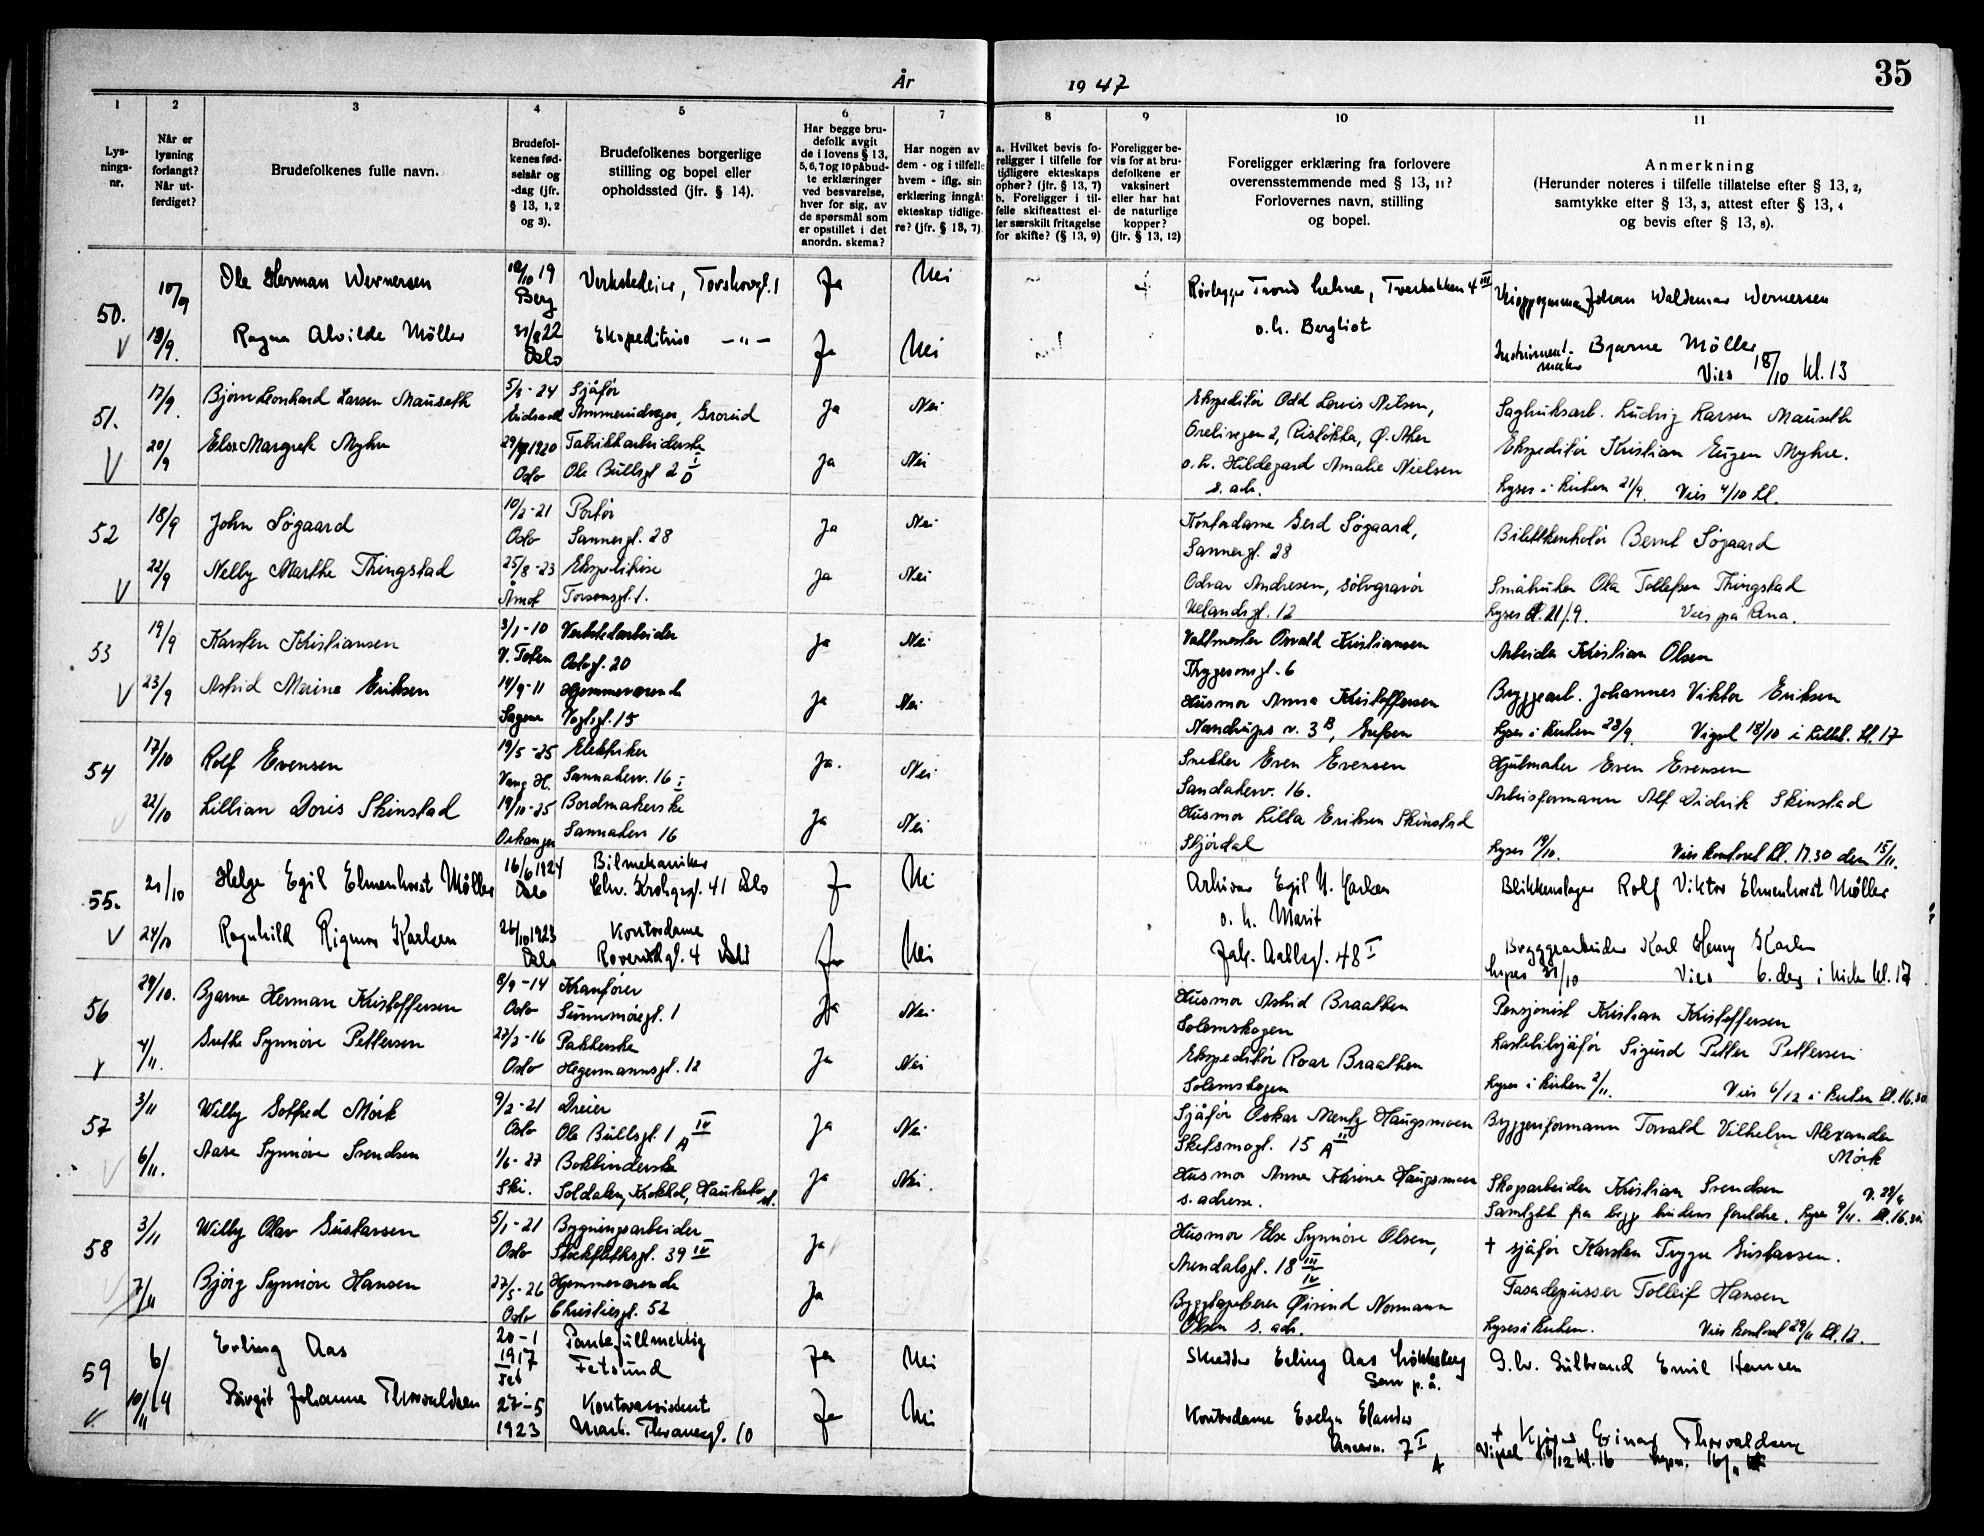 35
År 1947
1 2 3 4 5 6 7 8 9 10 11
Lysningsnr.
Når er lysning forlangt? Når utferdiget?
Brudefolkenes fulle navn.
Brudefolkenes fødselsår og -dag (jfr. § 13, 1, 2 og 3).
Brudefolkenes borgerlige stilling og bopel eller opholdssted (jfr. § 14).
Har begge brudefolk avgit de i lovens § 13, 5, 6, 7 og 10 påbudte erklæringer ved besvarelse, hver for sig, av de spørsmål som er opstillet i det anordn. skema?
Har nogen av dem - og i tilfelle hvem - iflg. sin erklæring inngåt ekteskap tidligere? (jfr. § 13, 7)
a. Hvilket bevis foreligger i tilfelle for tidligere ekteskaps ophør? (jfr. § 13, 7)
b. Foreligger i tilfelle skifteattest eller særskilt fritagelse for skifte? (§ 13, 9)
Foreligger bevis for at brudefolkene er vaksinert eller har hat de naturlige kopper? (jfr. § 13, 12)
Foreligger erklæring fra forlovere overensstemmende med § 13, 11? Forlovernes navn, stilling og bopel.
Anmerkning
(Herunder noteres i tilfelle tillatelse efter § 13, 2, samtykke efter § 13, 3, attest efter § 13, 4 og bevis efter § 13, 8).
50. 10/9 Ole Herman Wernersen 19 Berg Verkstedeier, Torshovgt. 1 Ja Nei
Rørlegger Trond Lehne, Tverbakken 4 III
Johan Waldemar Wernersen
18/9. Ragna Alvilde Möller 31/8 22 Oslo Ekspeditrise —"— Ja Nei
o.h. Bergliot
Instrumentmaker Bjarne Möller
Vies 18/10 kl. 13
51. 17/9. Bjørn Leonhard Larsen Mauseth 24 Sjåfør
Ammerudvegen, Grorud Ja Nei
Ekspeditør Odd Lovis Nilsen,
2, Risløkka, Ø. Aker
Sagbruksarb. Ludvig Larsen Mauseth
20/9 Else Margrete Myhre 1920 Fabrikkarbeiderske
Oslo Ole Bullsgt 2 D I Ja Nei
o.h. Hildegard Amalie Nielsen
s. adr.
Ekspeditør Kristian Eugen Myhre.
Lyses i kirken 21/9. Vies 4/10 kl.
52 18/9 John Søgaard 10/2-21 Portør
Oslo Sannergt. 28 Ja Nei
Kontordame Gerd Søgaard,
Sannergt. 28
Billettkontrolør Bernt Søgaard
22/9 Nelly Marthe Thingstad 25/8-23 Ekspeditrise
Åmot Torsovsgt. 1. Ja Nei
Odvar Andresen, sølvgravør
Uelandsgt. 12
Småbruker Ola Tollefsen Thingstad
Lyses 21/9. Vies på Rena.
53 19/9 Karsten Kristiansen 3/1-10 Verkstedarbeider
V. Toten Oslogt. 20 Ja Nei
Vaktmester Osvald Kristiansen
Thygesonsgt. 6
Arbeider Kristian Olsen
23/9 Astrid Marine Eriksen 14/9-11 Hjemmeværende
Sagene Vogtsgt. 15 Ja Nei
Husmor Anna Kristoffersen
Nandrups v. 3 B, Grefsen
Bryggearb. Johannes Viktor Eriksen
Lyses i kirken 28/9. Vigsel 18/10 i kl. 17
54 17/10 Rolf Evensen 19/5-25 Elektriker
Vang H. Sannakerv. 16 I Ja. Nei
Snekker Even Evensen
Sandakerv. 16.
Hjulmaker Even Evensen
22/10 Lillian Doris Skinstad 19/10-25 Bordmakerske
Orkanger Sannakerv 16 Ja Nei
Husmor Lilla Eriksen Skinstad
Stjørdal
Arbeisformann Alf Didrik Skinstad
Lyses 19/10. Vies kontoret kl. 17.30 den 15/11.
55. 21/10 Helge Egil Elmenhorst Möller 16/6 1924 Bilmekaniker
Oslo Chr. Krohgsgt. 41 Oslo Ja Nei
Arkivar Egil N. Karlsen
o. h. Marit
Blikkenslager Rolf Viktor Elmenhorst Möller
24/10 Ragnhild Rigmor Karlsen 26/10 1923 Kontordame
Oslo gt. 4 Oslo Ja Nei
Jak. Aallsgt. 48 I
Bryggearbeider Karl Henry Karlsen
Lyses /10 Vies 6. des i kirken kl. 17
56 29/10. Bjarne Herman Kristoffersen 8/9-14 Kranfører
Oslo Sunnmøregt. 1 Ja Nei
Husmor Astrid Braathen
Solemskogen
Pensjonist Kristian Kristoffersen
4/11. Grethe Synnøve Pettersen 27/2-16 Pakkerske
Oslo Hegermannsgt. 12 Ja Nei
Ekspeditør Roar Braathen
Solemskogen
Lastebilsjåfør Sigurd Petter Pettersen
Lyses i kirken 2/11. Vies 6/12 i kirken kl. 16.30
57 3/11 Willy Gotfred Mörk 9/2-21 Dreier
Oslo Ole Bullsgt. 1 A IV Ja Nei
Sjåfør Oskar Mentz Haugsmoen
Sketsmogt. 15 A II
Bryggeriformann Torvald Vilhelm Alexander Mörk
6/11. Aase Synnøve Svendsen 1/6-27 Bokbinderske
Ski. Soldalen, Krokhol, Ja Nei.
Husmor Anna Karine Haugsmoen
s. adresse.
Skogsarbeider Kristian Svendsen
Samtykke fra begge brudens foreldre. Lyses 9/11. kl. 16.30
58 3/11 Willy Olav Gustavsen 5/1-21 Bygningsarbeider
Oslo Stockflethsgt. 39 IV Ja
Husmor Else Synnøve Olsen,
Arendalsgt. 18 III IV
† sjåfør Karsten Trygve Gustavsen.
7/11 Bjørg Synnøve Hansen 27/5-26 Hjemmeværende
Oslo Christiesgt. 52 Ja
Øivind Normann
Olsen s. adr.
Fasadepusser Tolleif Hansen
Lyses i kirken. Vies kontoret 29/11 kl. 12.
59 6/11 Erling Aas 20-1 1917 Fet Pantefullmektig
Fetsund Ja Nei
Skredder Erling Aas
Sem p.å.
Gulbrand Emil Hansen
10/11 Birgit Johanne Thorvaldsen 27-5 1923 Kontorassistent
Mark. Thranesgt. 10 Ja Nei
Kontordame Evelyn Elander
7 I A
† Einar Thorvaldsen
Vigsel /12 kl. 16 16/11